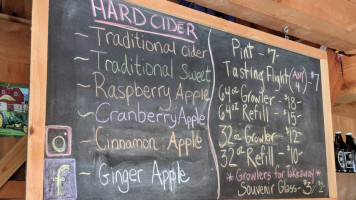 HARD CIDER
~Traditional cider
~Traditional Sweet
~Raspberry Apple
~Cranberry Apple
~Cinnamon Apple
~Ginger Apple
Pint - 7-
Tasting Flight (Any 4) $7-
64oz Growler - $18-
64oz Refill - $15-
32oz Growler - $12-
32oz Refill - 10-
*Growlers for takeaway*
Souvenir Glass -